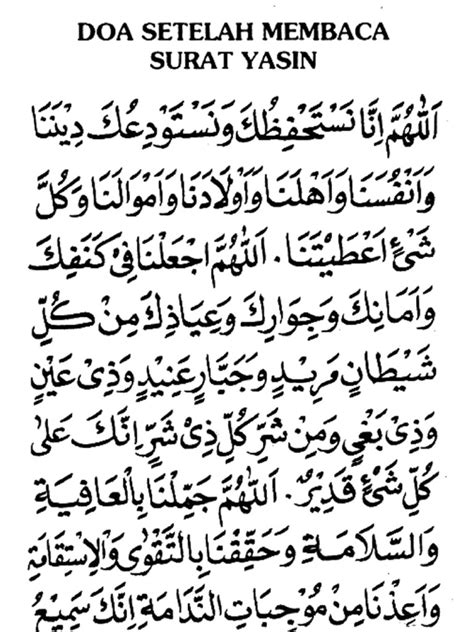 DOA SETELAH MEMBACA
SURAT YASIN
اَللّٰهُمَّ اِنَّا نَسْتَحْفِظُكَ وَنَسْتَوْدِعُكَ دِيْنَنَا
وَاَنْفُسَنَا وَاَهْلَنَا وَاَوْلَادَنَا وَاَمْوَالَنَا وَكُلَّ
شَيْءٍ اَعْطَيْتَنَا . اَللّٰهُمَّ اجْعَلْنَا فِيْ كَنَفِكَ
وَاَمَانِكَ وَجِوَارِكَ وَعِيَاذِكَ مِنْ كُلِّ
شَيْطَانٍ مَرِيْدٍ وَجَبَّارٍ عَنِيْدٍ وَذِيْ عَيْنٍ
وَذِيْ بَغْيٍ وَمِنْ شَرِّ كُلِّ ذِيْ شَرٍّ اِنَّكَ عَلٰى
كُلِّ شَيْءٍ قَدِيْرٌ . اَللّٰهُمَّ جَمِّلْنَا بِالْعَافِيَةِ
وَالسَّلَامَةِ وَحَقِّقْنَا بِالتَّقْوٰى وَالْاِسْتِقَامَةِ
وَاَعِذْنَا مِنْ مُوْجِبَاتِ النَّدَامَةِ اِنَّكَ سَمِيْعُ